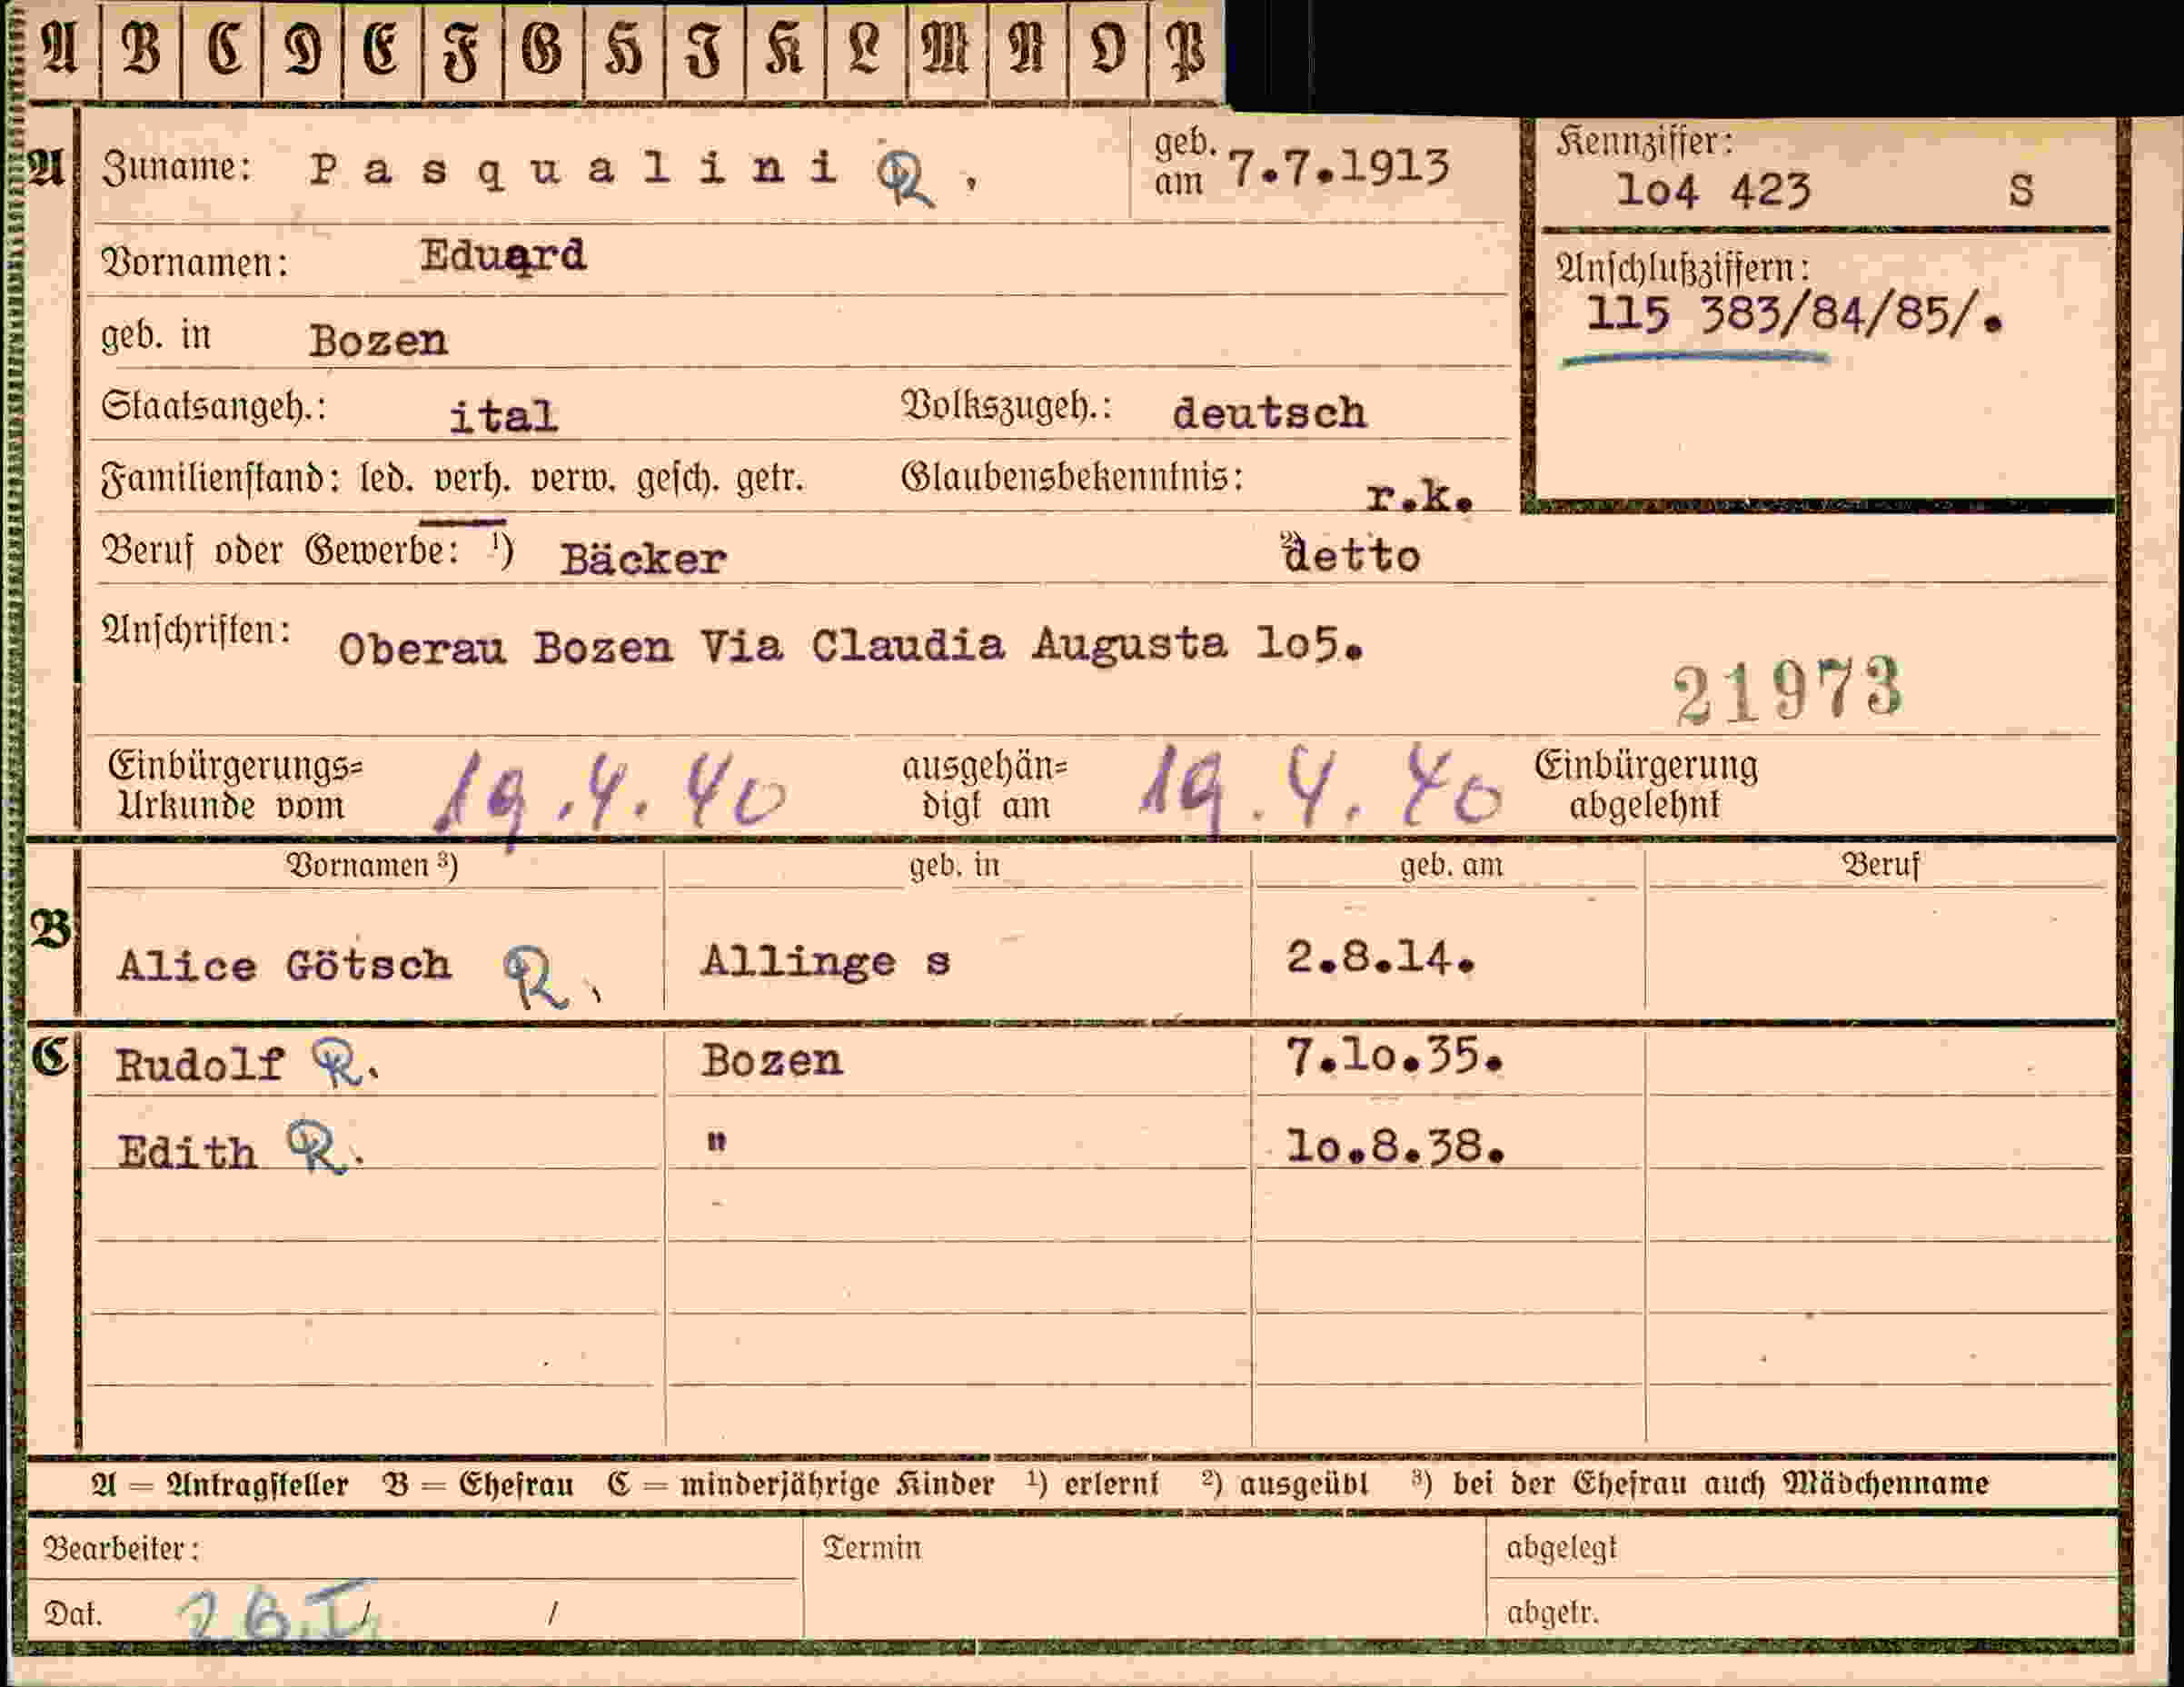 A B C D E F G H I K L M N O P
A Zuname: Pasqualini R. geb. am 7.7.1913
Kennziffer:
lo4 423 S
Vornamen: Eduard
Anschlußziffern:
115 383/84/85/.
geb. in Bozen
Staatsangeh.: ital Volkszugeh.: deutsch
Familienstand: led. verh. verw. gesch. getr. Glaubensbekenntnis: r.k.
Beruf oder Gewerbe: ¹) Bäcker ²) detto
Anschriften: Oberau Bozen Via Claudia Augusta lo5.
21973
Einbürgerungs= Urkunde vom 19.4.40 ausgehän= digt am 19.4.40 Einbürgerung abgelehnt
Vornamen ³) geb. in geb. am Beruf
B Alice Götsch R. Allinge s 2.8.14.
C Rudolf R. Bozen 7.lo.35.
Edith R. " lo.8.38.
A = Antragsteller B = Ehefrau C = minderjährige Kinder ¹) erlernt ²) ausgeübt ³) bei der Ehefrau auch Mädchenname
Bearbeiter: Termin abgelegt
Dat. 26.I / / abgetr.